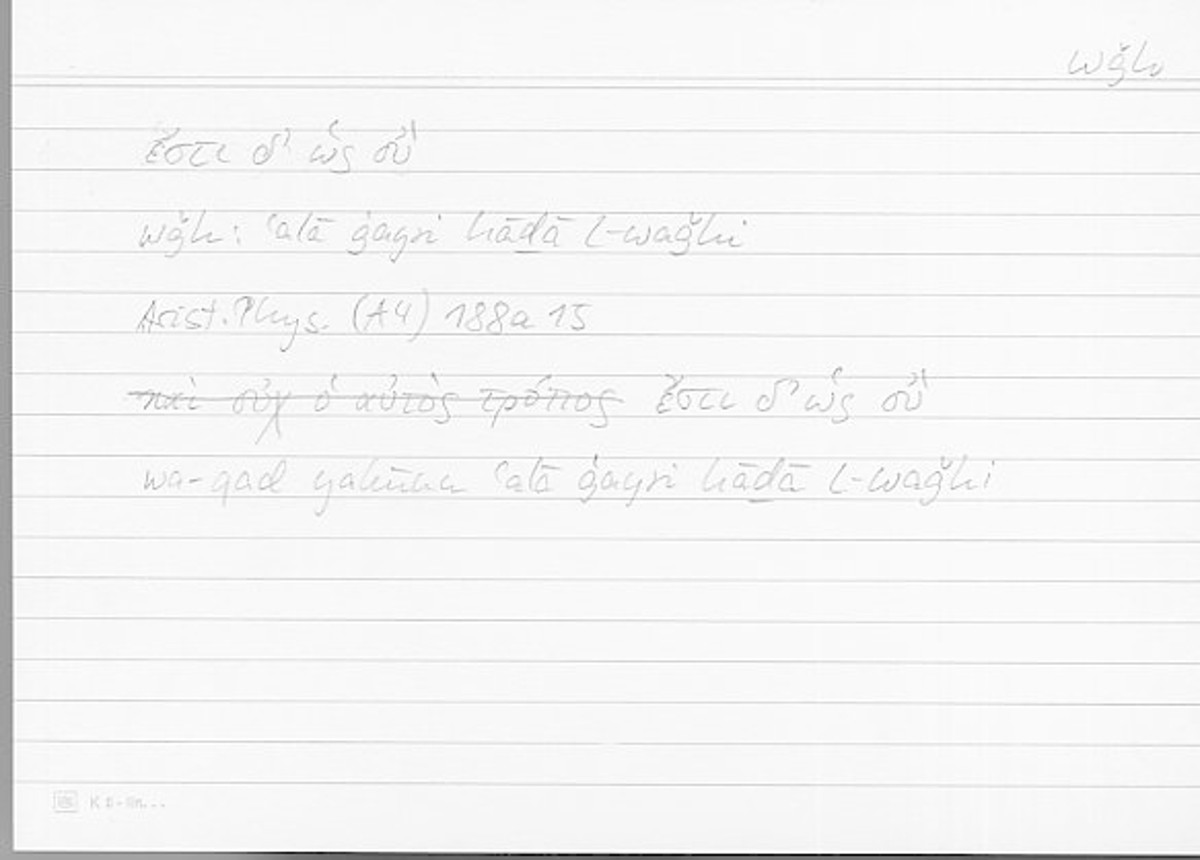 wǧh
ἔστι δ' ὡς οὔ
wǧh: ʿalā ġayri hāḏā l-waǧhi
Arist. Phys. (A4) 188a 15
~~καὶ οὐχ ὁ αὐτὸς τρόπος~~ ἔστι δ' ὡς οὔ
wa-qad yakūnu ʿalā ġayri hāḏā l-waǧhi